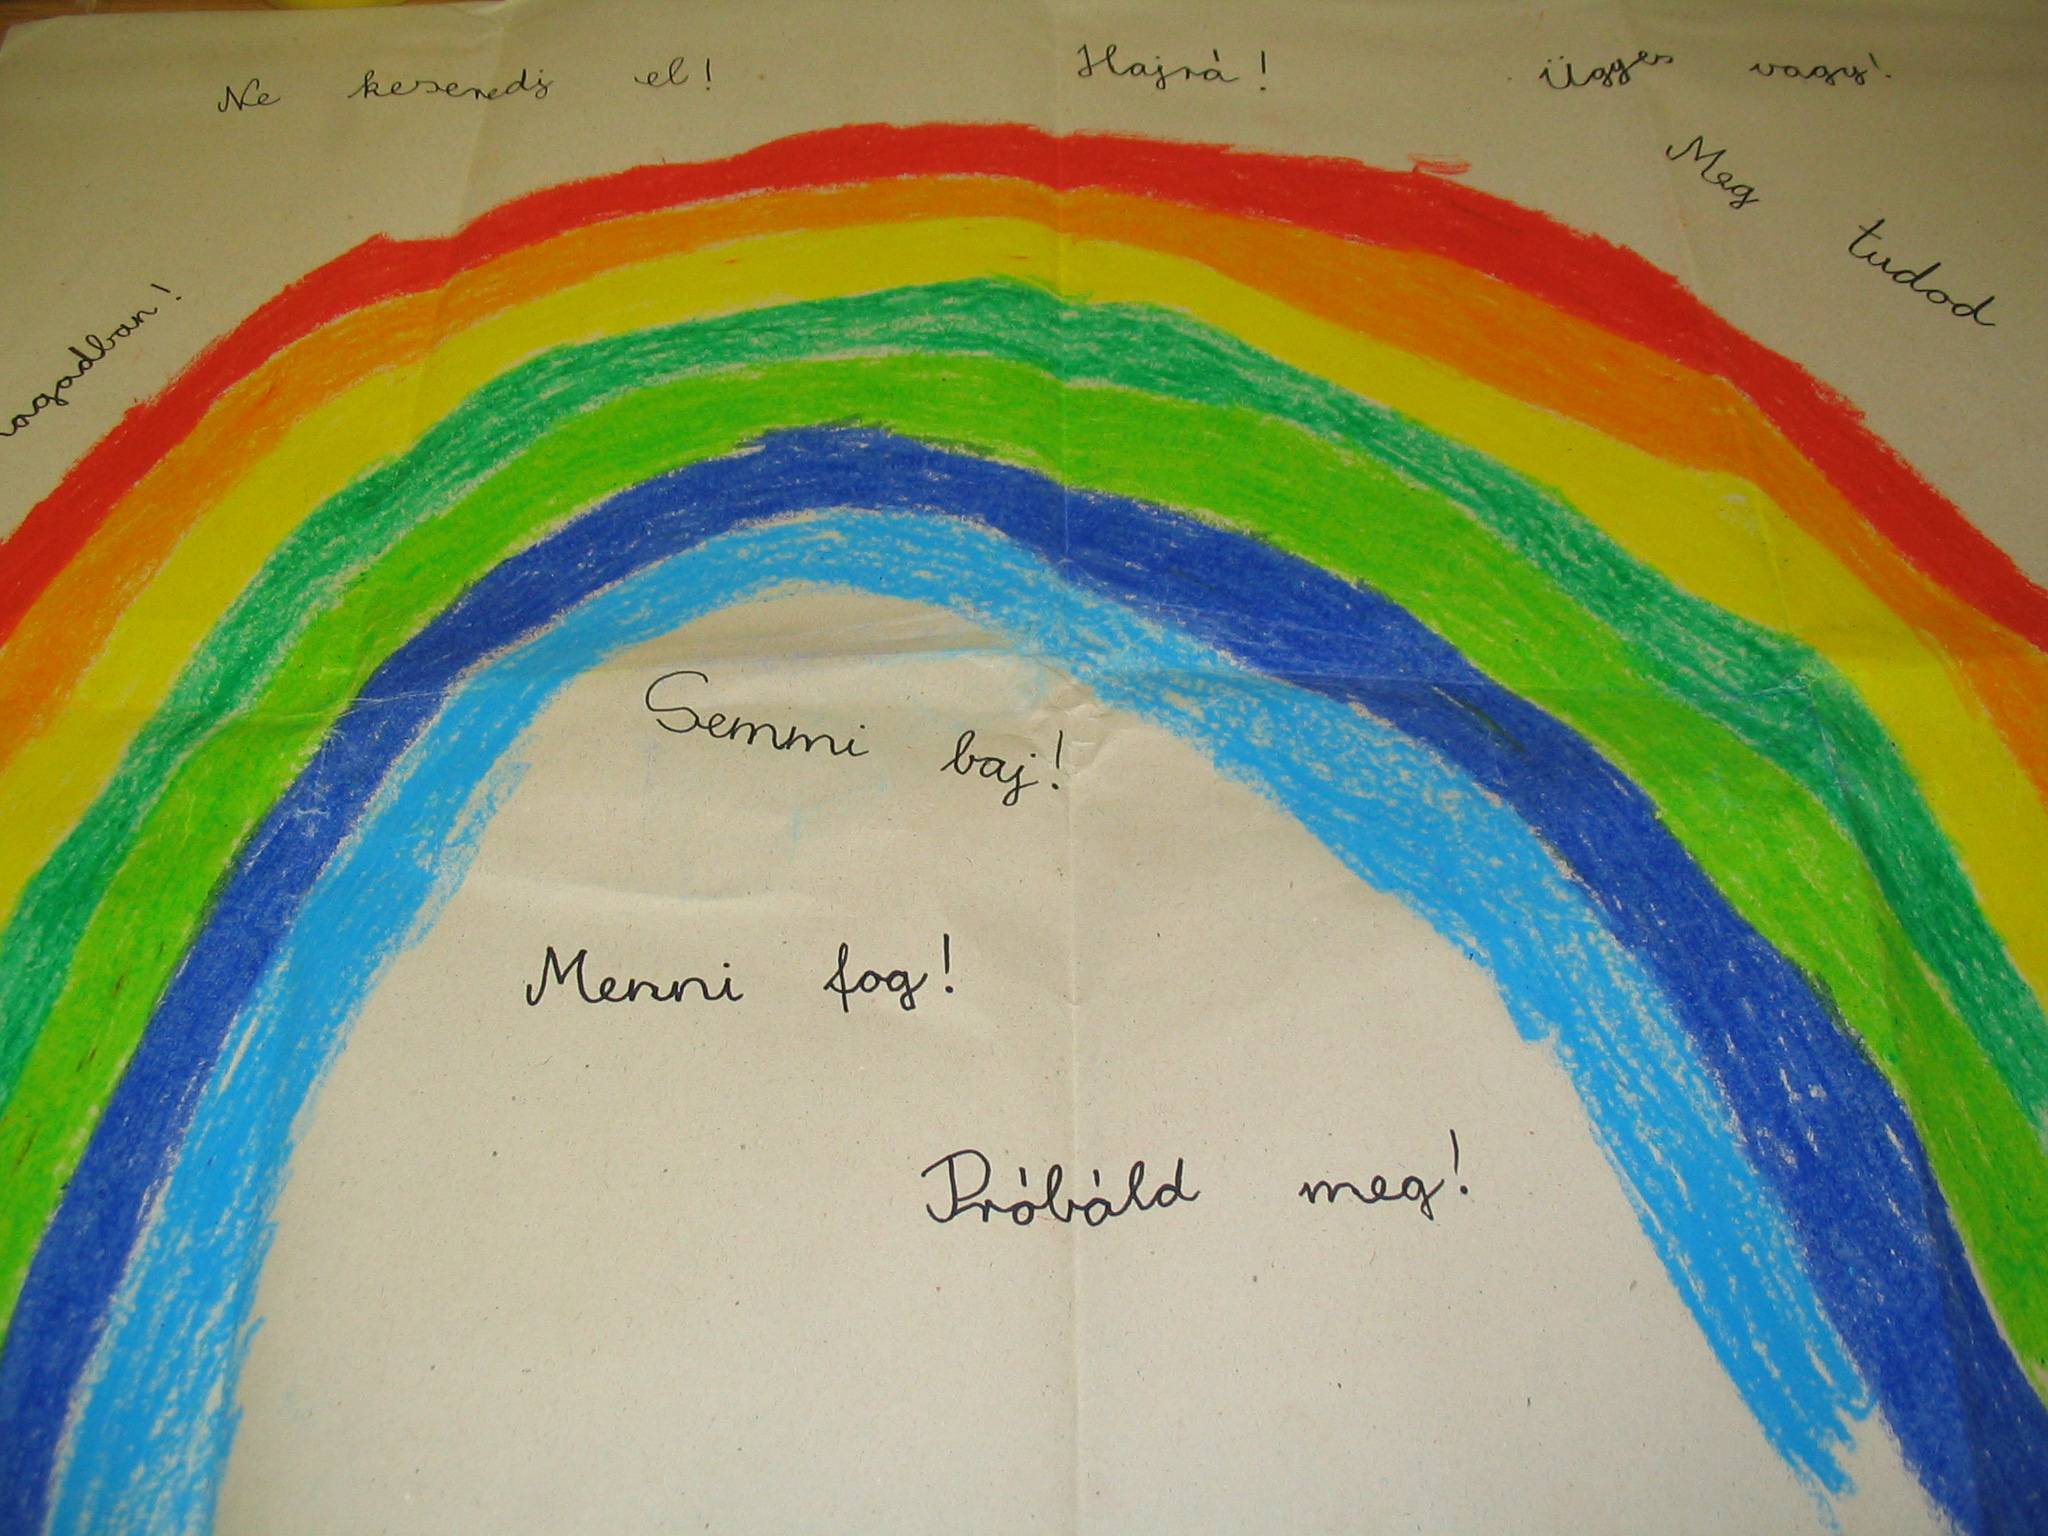 Ne keseredj el!
Hajrá!
Ügyes vagy!
Meg tudod
magadban!
Semmi baj!
Menni fog!
Próbáld meg!